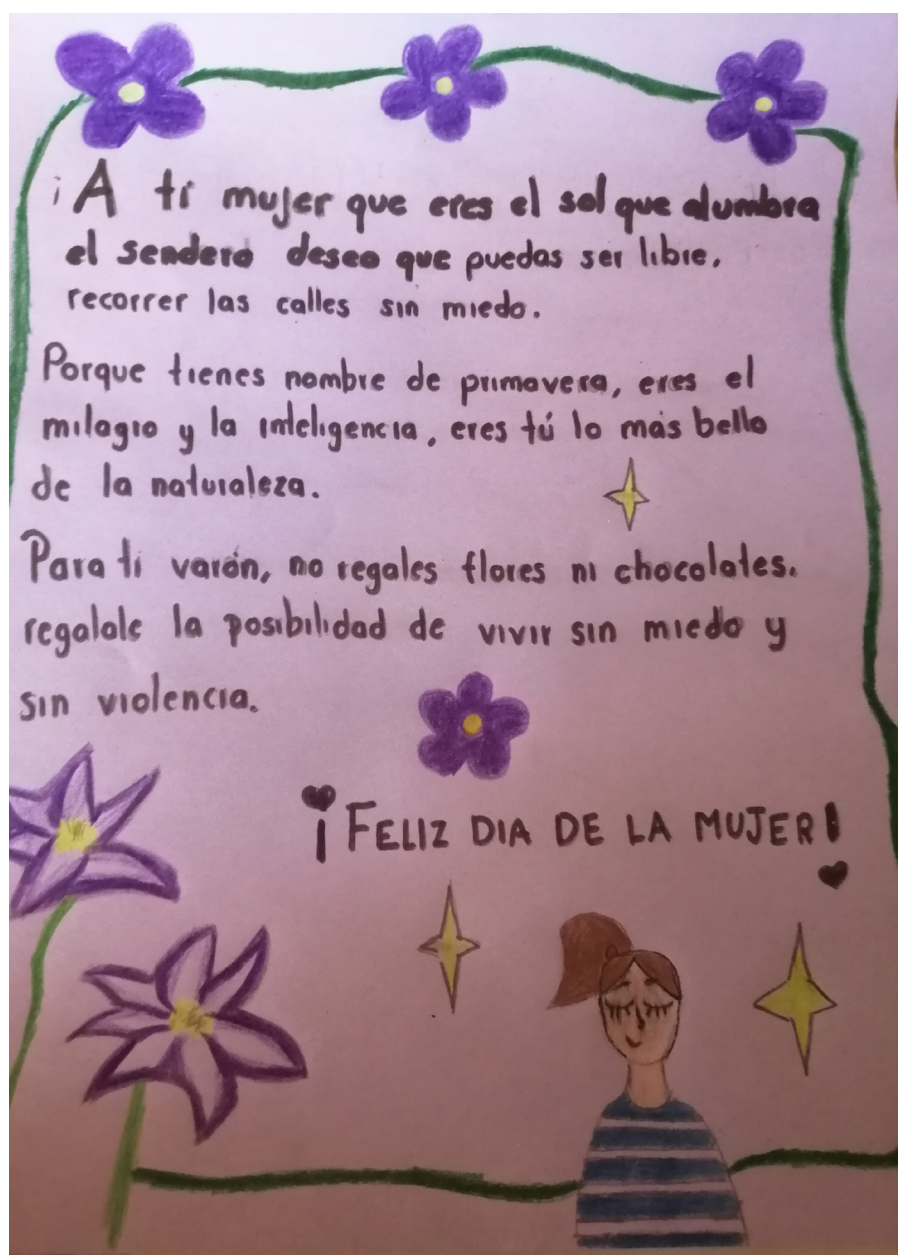 ¡A ti mujer que eres el sol que alumbra
el sendero deseo que puedas ser libre,
recorrer las calles sin miedo.
Porque tienes nombre de primavera, eres el
milagro y la inteligencia, eres tú lo más bello
de la naturaleza.
Para ti varón, no regales flores ni chocolates.
regalale la posibilidad de vivir sin miedo y
sin violencia.
¡FELIZ DIA DE LA MUJER!